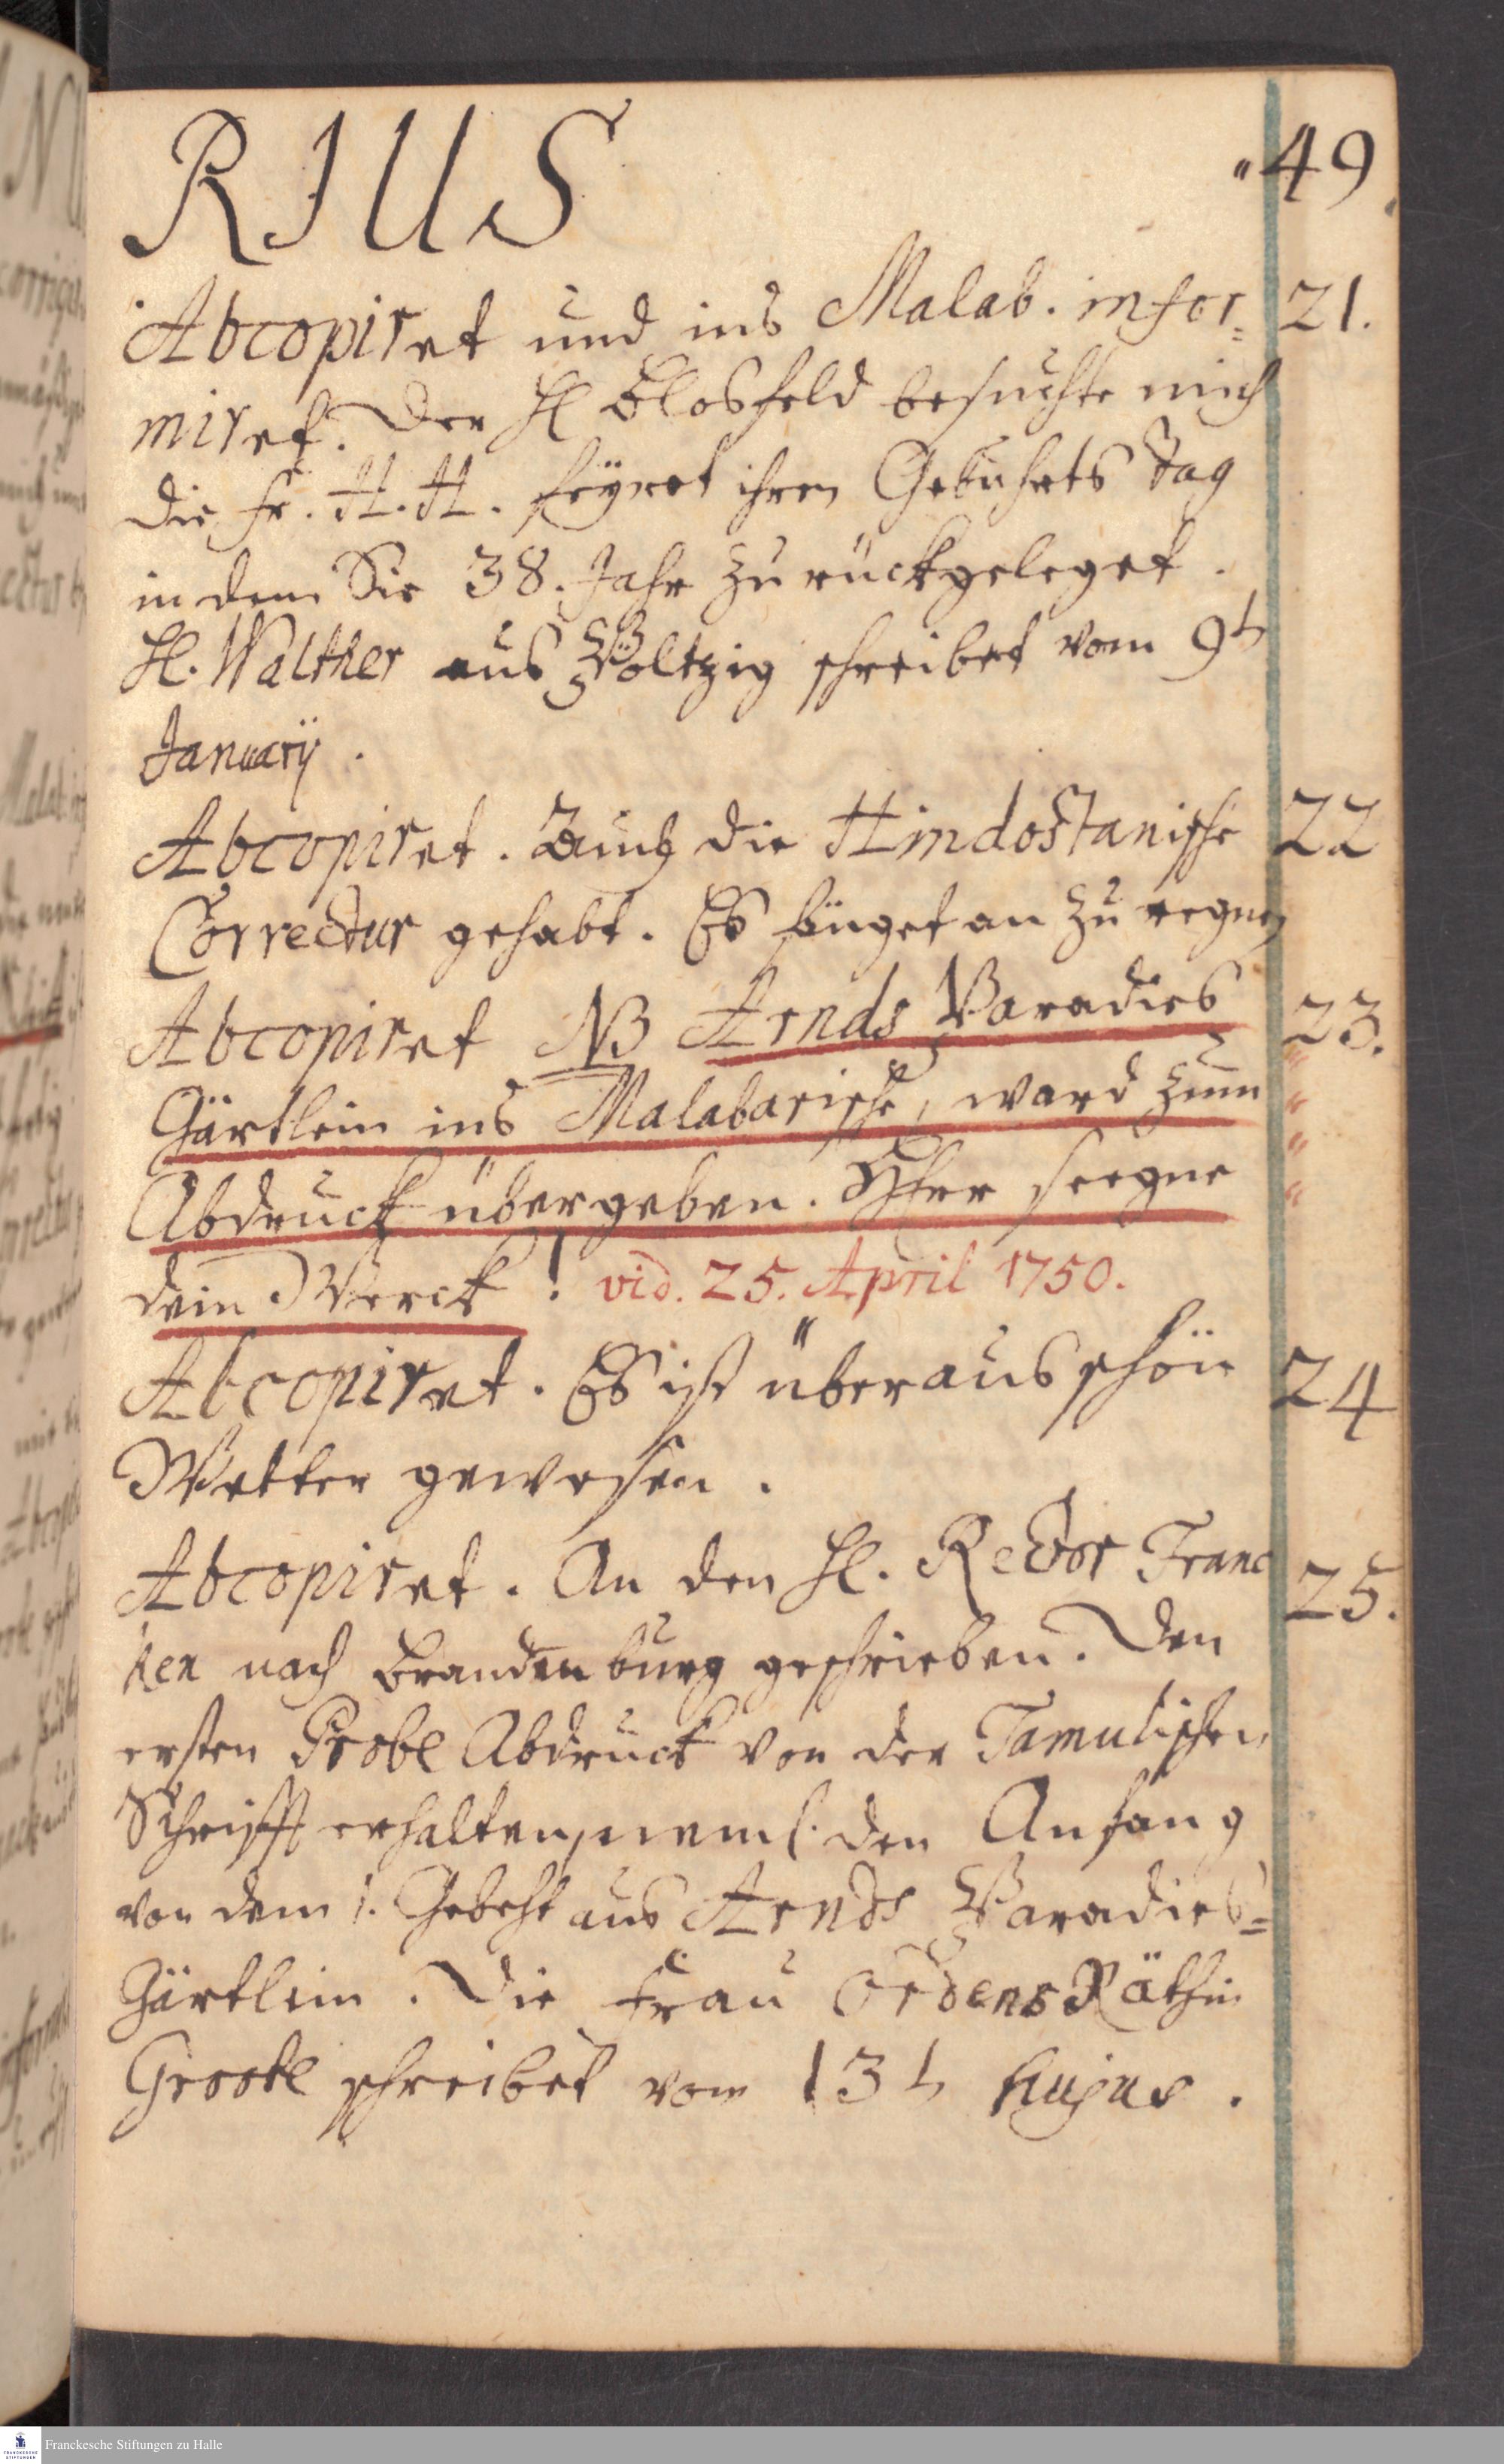 RIUS "49.
Abcopiret und ins Malab. infor= 21.
miret. Der H Blosfeld besuchte mich
die Fr. H. H. feÿret ihren Gebuhrts Tag
in dem Sie 38. Jahr zurückgeleget.
H. Walther aus Poltzig schreibet vom 9t
Januarÿ.
Abcopiret. Auch die Hindostanische 22
Correctur gehabt. Es fänget an zu regnen
Abcopiret NB Arnds Paradies 23.
Gärtlein ins Malabarische, ward zum
Abdruck übergeben. HErr seegne
dein Werck! vid. 25. April 1750.
Abcopiret. Es ist überaus schön 24
Wetter gewesen.
Abcopiret. An den H. Rector Franc 25.
ken nach Brandenburg geschrieben. Den
ersten Probe Abdruck von der Tamulischen
Schrifft erhalten, neml. den Anfang
von dem 1. Gebeht aus Arnds Paradies=
Gärtlein. Die Frau Ordens Räthin
Groote schreibet vom 13t hujus.
Franckesche Stiftungen zu Halle